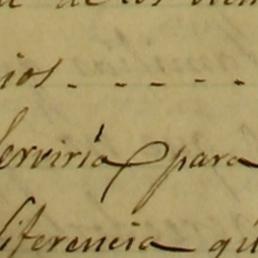 de los
ios - - - - -
serviría para
diferencia qu